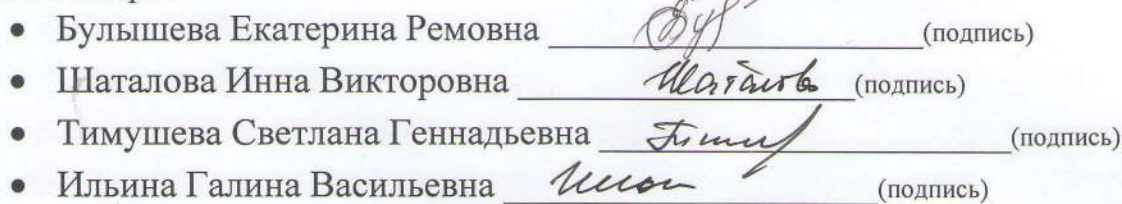 • Булышева Екатерина Ремовна (подпись)
• Шаталова Инна Викторовна Шаталова (подпись)
• Тимушева Светлана Геннадьевна (подпись)
• Ильина Галина Васильевна (подпись)